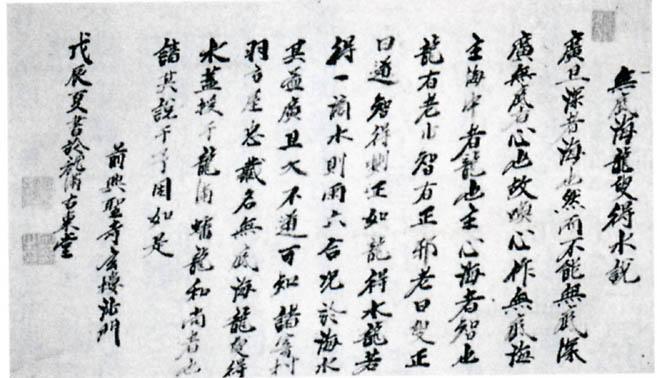 無底海龍叟得水説
廣且深者海也然而不能無底深
廣無底者心也故喚心作無底海
主海中者龍也主心海者智也
龍有老少智有正邪老曰叟正
曰道智得則正如龍得水龍若
得一滴水則雨六合況於海水
其益廣且大不道可知諸
羽方座忠藏名無底海龍叟得
水蓋投于龍 龍和尚者也
請其説于予因如是
前興聖寺
戊辰夏書於龍 古東堂